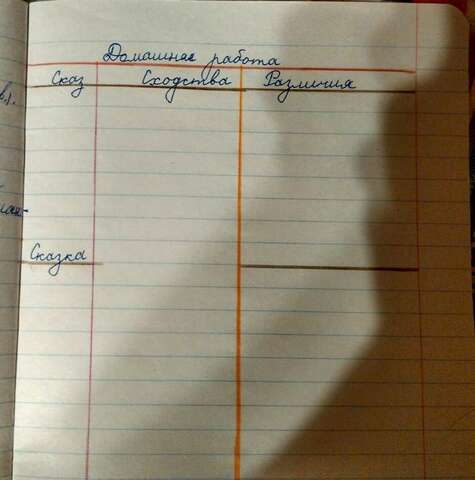 Домашнее работа
Сказ Сходства Различия
Сказка